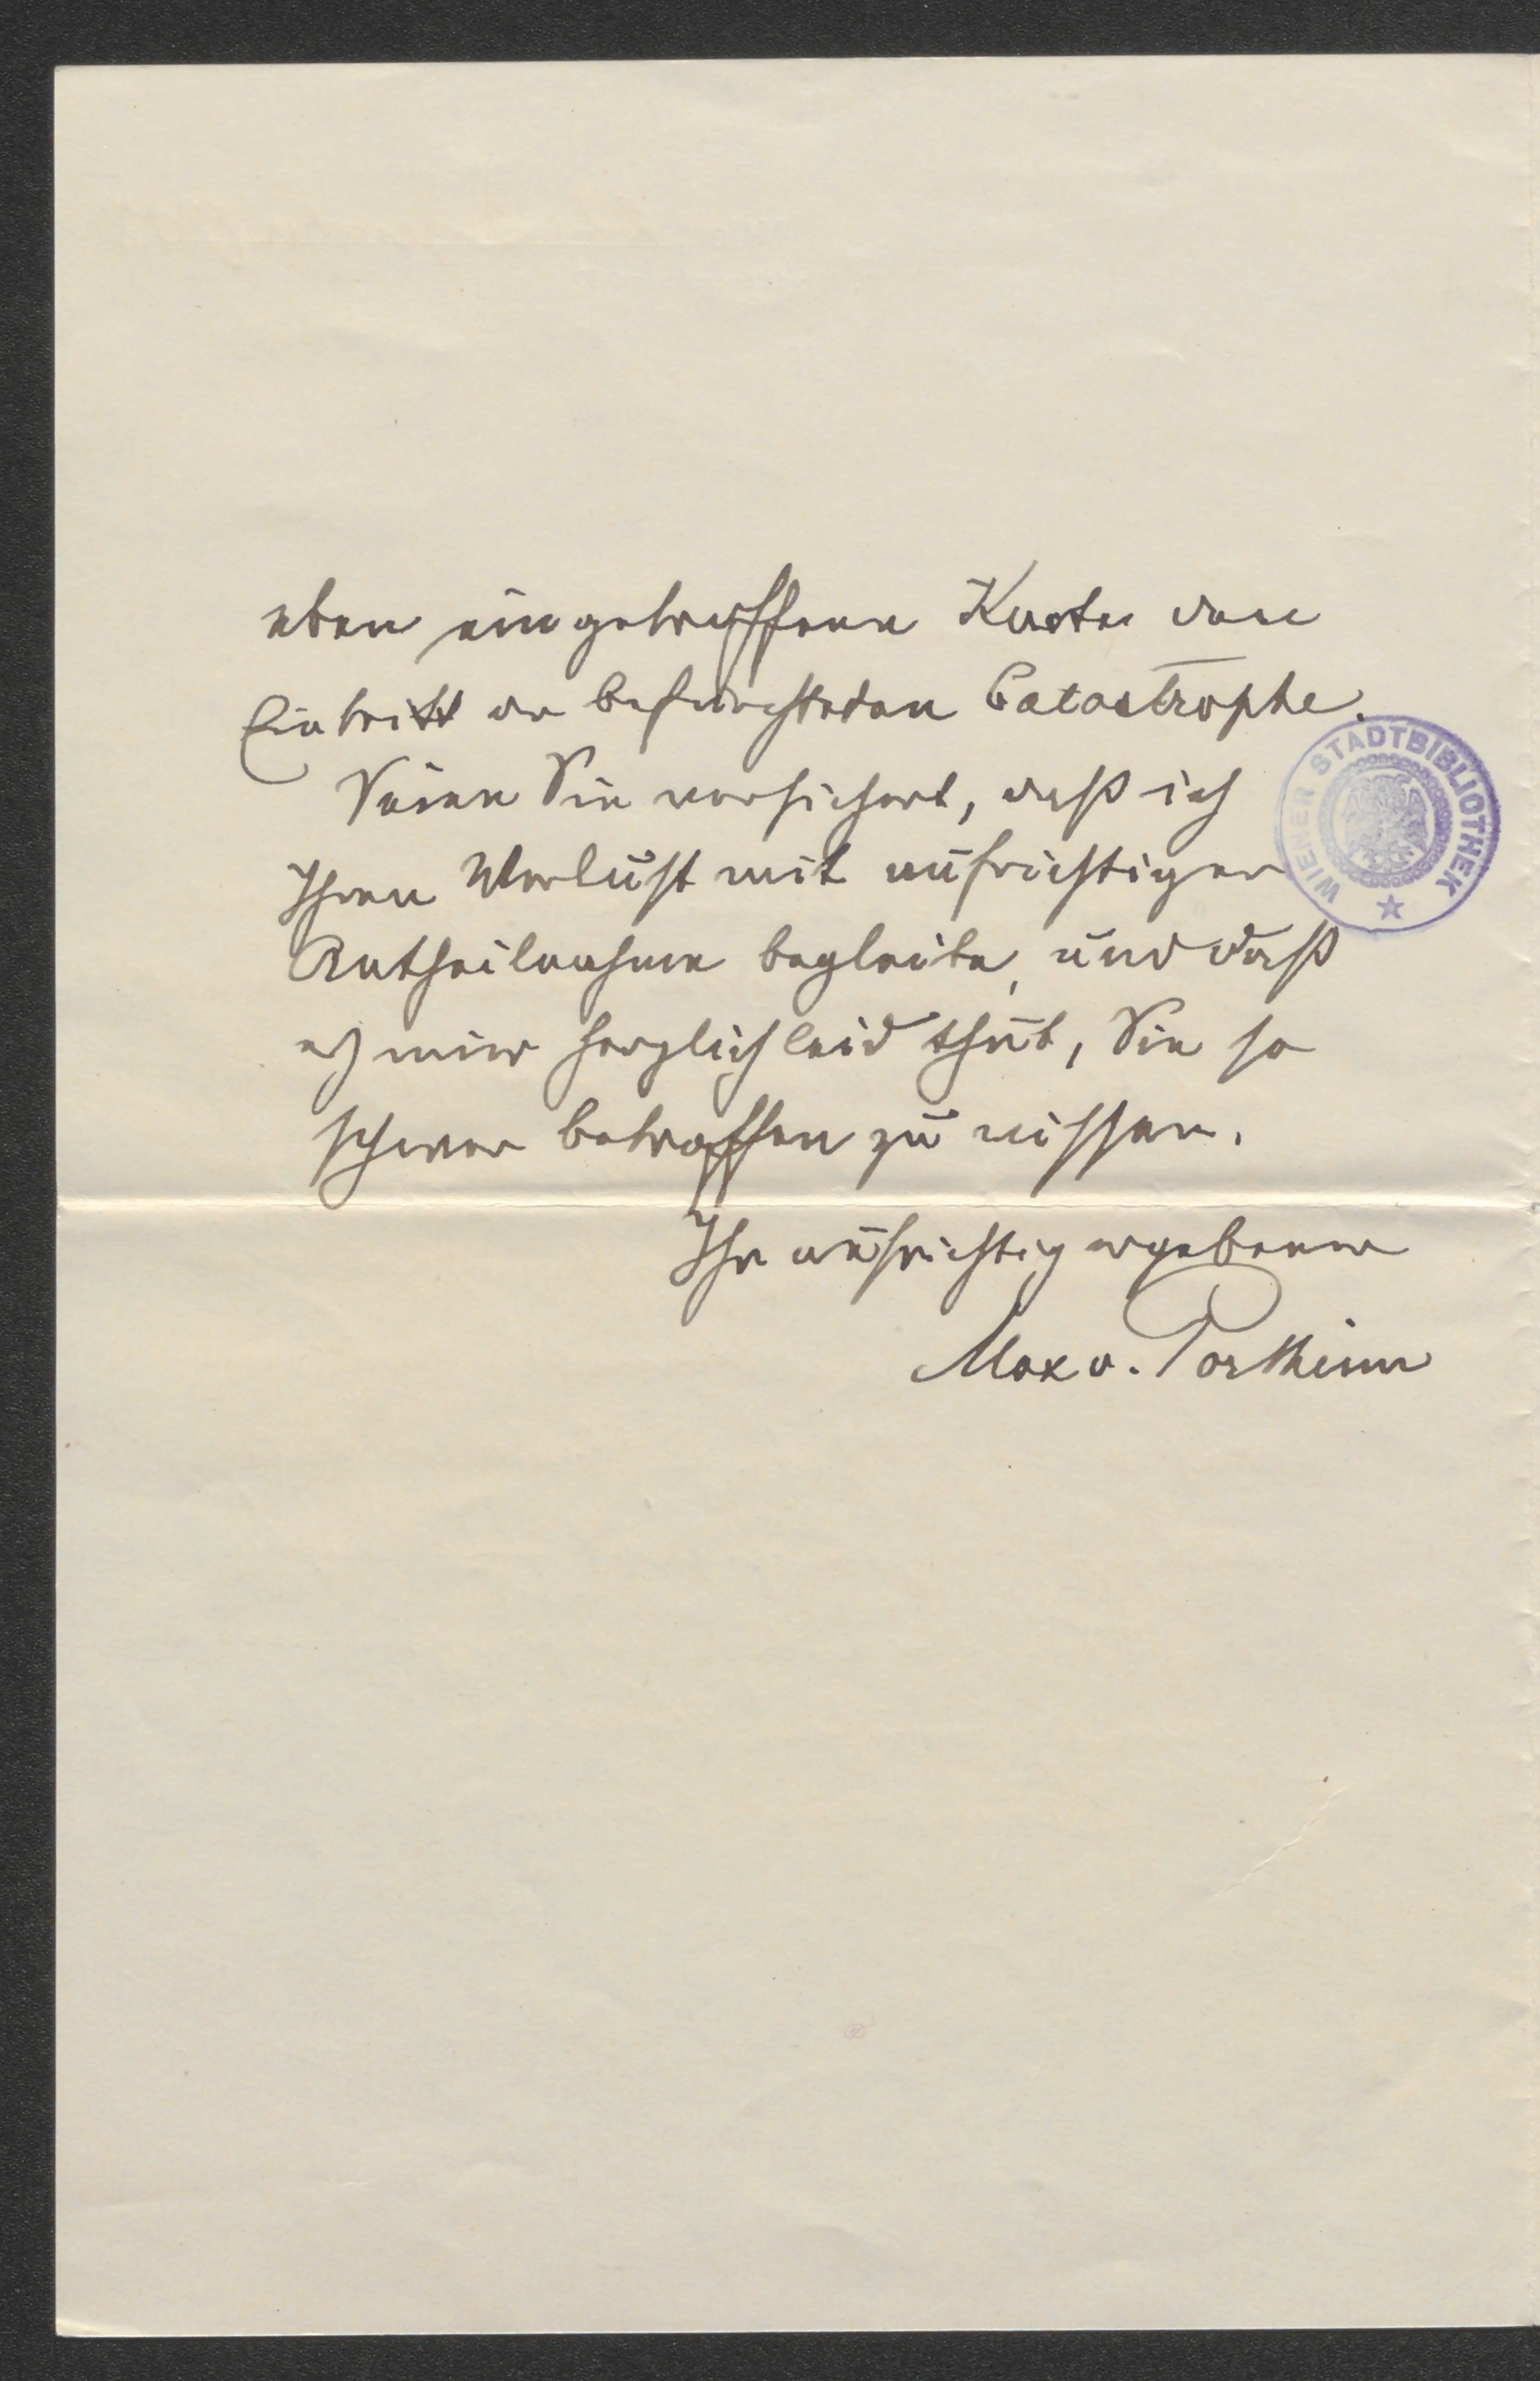 eben eingetroffene Karte den
Eintritt der befürchteten Catastrophe.
Seien Sie versichert, daß ich
Ihren Verlust mit aufrichtiger
Antheilnahme begleite, und daß
es mir herzlich leid thut, Sie so
schwer betroffen zu wissen.
Ihr aufrichtig ergebener
Max v. Portheim
WIENER STADTBIBLIOTHEK